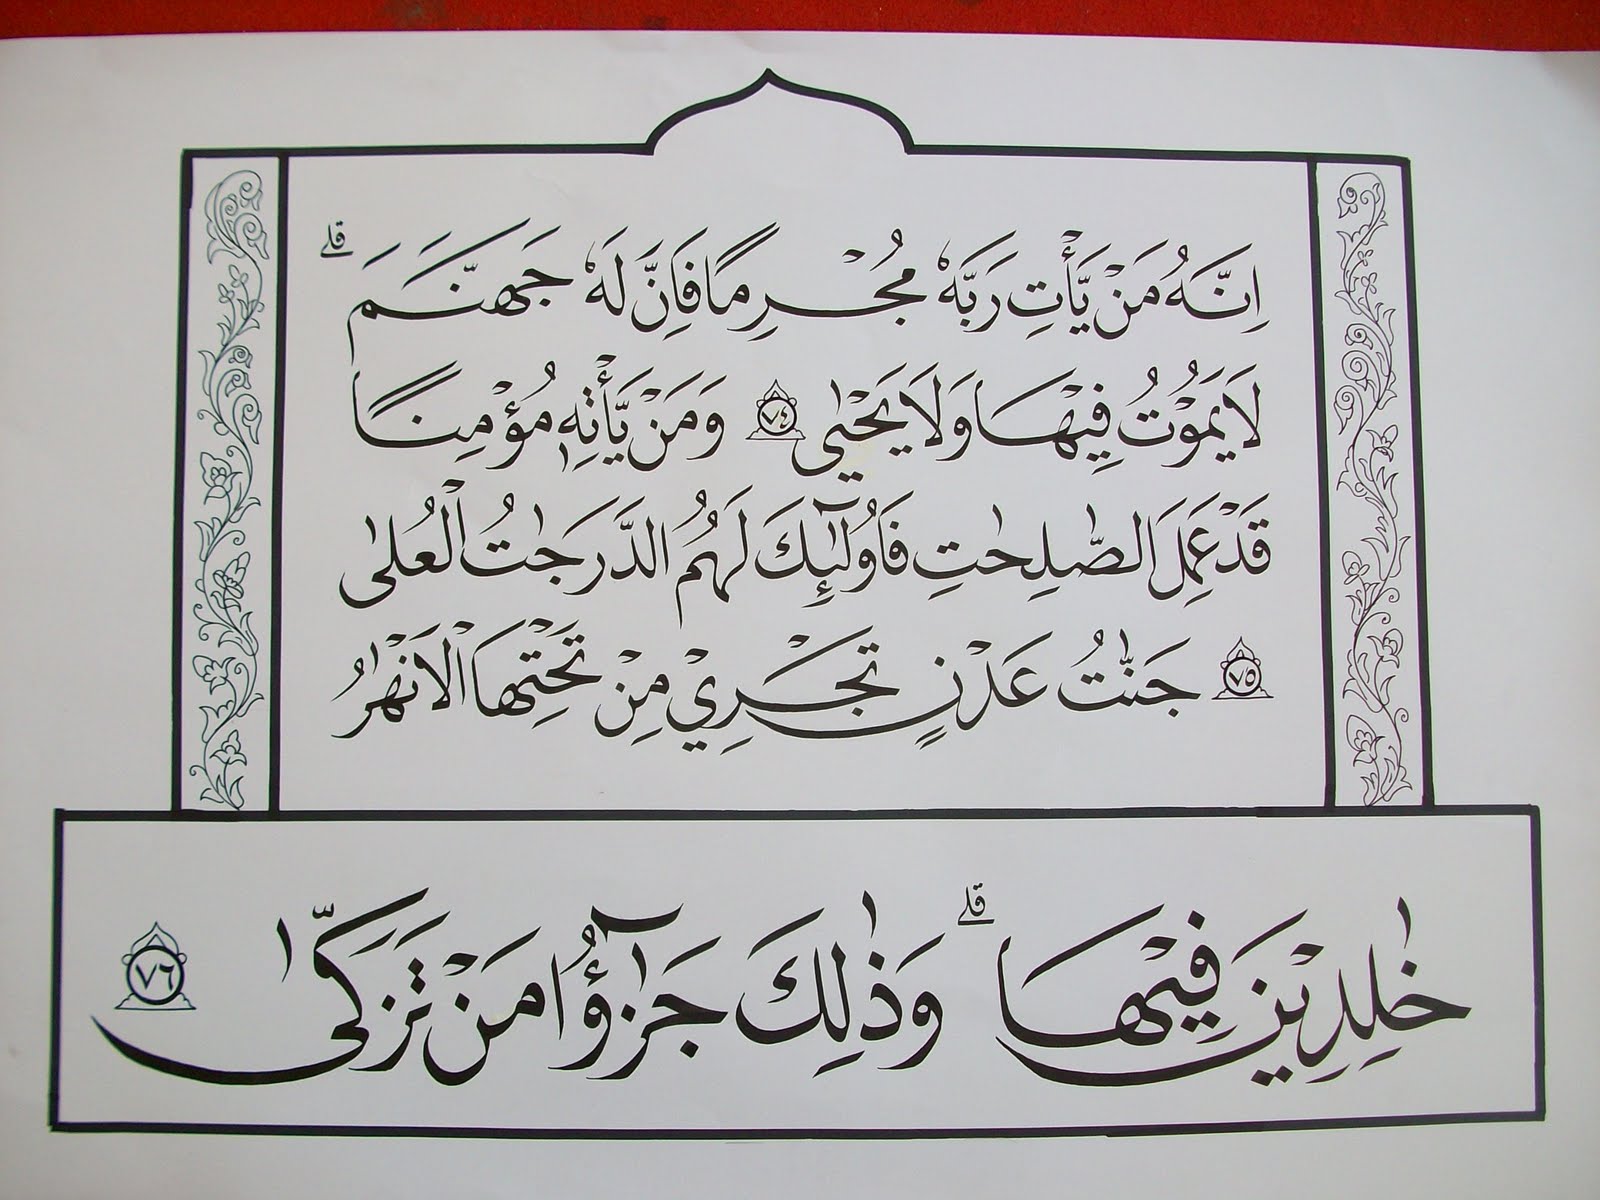 اِنَّهُ مَنْ يَّأْتِ رَبَّهٗ مُجْرِمًا فَاِنَّ لَهٗ جَهَنَّمَ ۗ
لَا يَمُوْتُ فِيْهَا وَلَا يَحْيٰى ٧٤ وَمَنْ يَّأْتِهٖ مُؤْمِنًا
قَدْ عَمِلَ الصّٰلِحٰتِ فَاُولٰۤىِٕكَ لَهُمُ الدَّرَجٰتُ الْعُلٰى
٧٥ جَنّٰتُ عَدْنٍ تَجْرِيْ مِنْ تَحْتِهَا الْاَنْهٰرُ
خٰلِدِيْنَ فِيْهَا ۗ وَذٰلِكَ جَزٰۤؤُا مَنْ تَزَكّٰى ٧٦